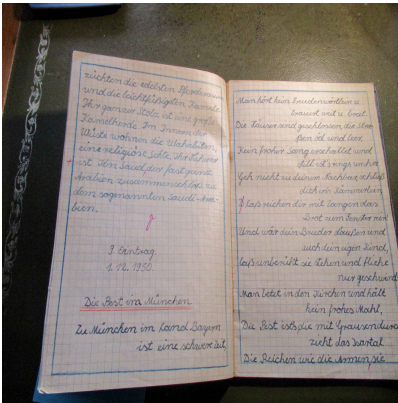 züchten die edelsten Pferderassen
und die leichtfüßigsten Kamele.
Ihr ganzer Stolz ist eine große
Kamelherde. Im Innern der
Wüste wohnen die Wahabiten,
eine religiöse Sekte. Ihr Führer
ist Ibn Saud der fast ganz
Arabien zusammenschloß zu
dem sogenannten Saudi-Ara-
bien.
Eintrag
1. 12. 1950.
Die Pest in München
Zu München im Land Bayern
ist eine schwere Zeit
Man hört kein
braust und es
Die Häuser sind geschlossen die Stra-
ßen öd und leer
Kein froher Sang erschallet und
still ist's rings umher
Geh nicht zu deinem Nachbar, schließ
dich ein Kämmerlein
Laß reichen dir mit Zangen das
Brot zum Fenster rein
Und wär dein Bruder draußen und
auch dein eigen Kind,
Laß unberührt sie stehen und fliehe
nur geschwind
Man betet in den Kirchen und hält
kein frohes Mahl,
Die Pest ists die mit Grausen durch
zieht das Isartal
Die Reichen wie die Armen, sie